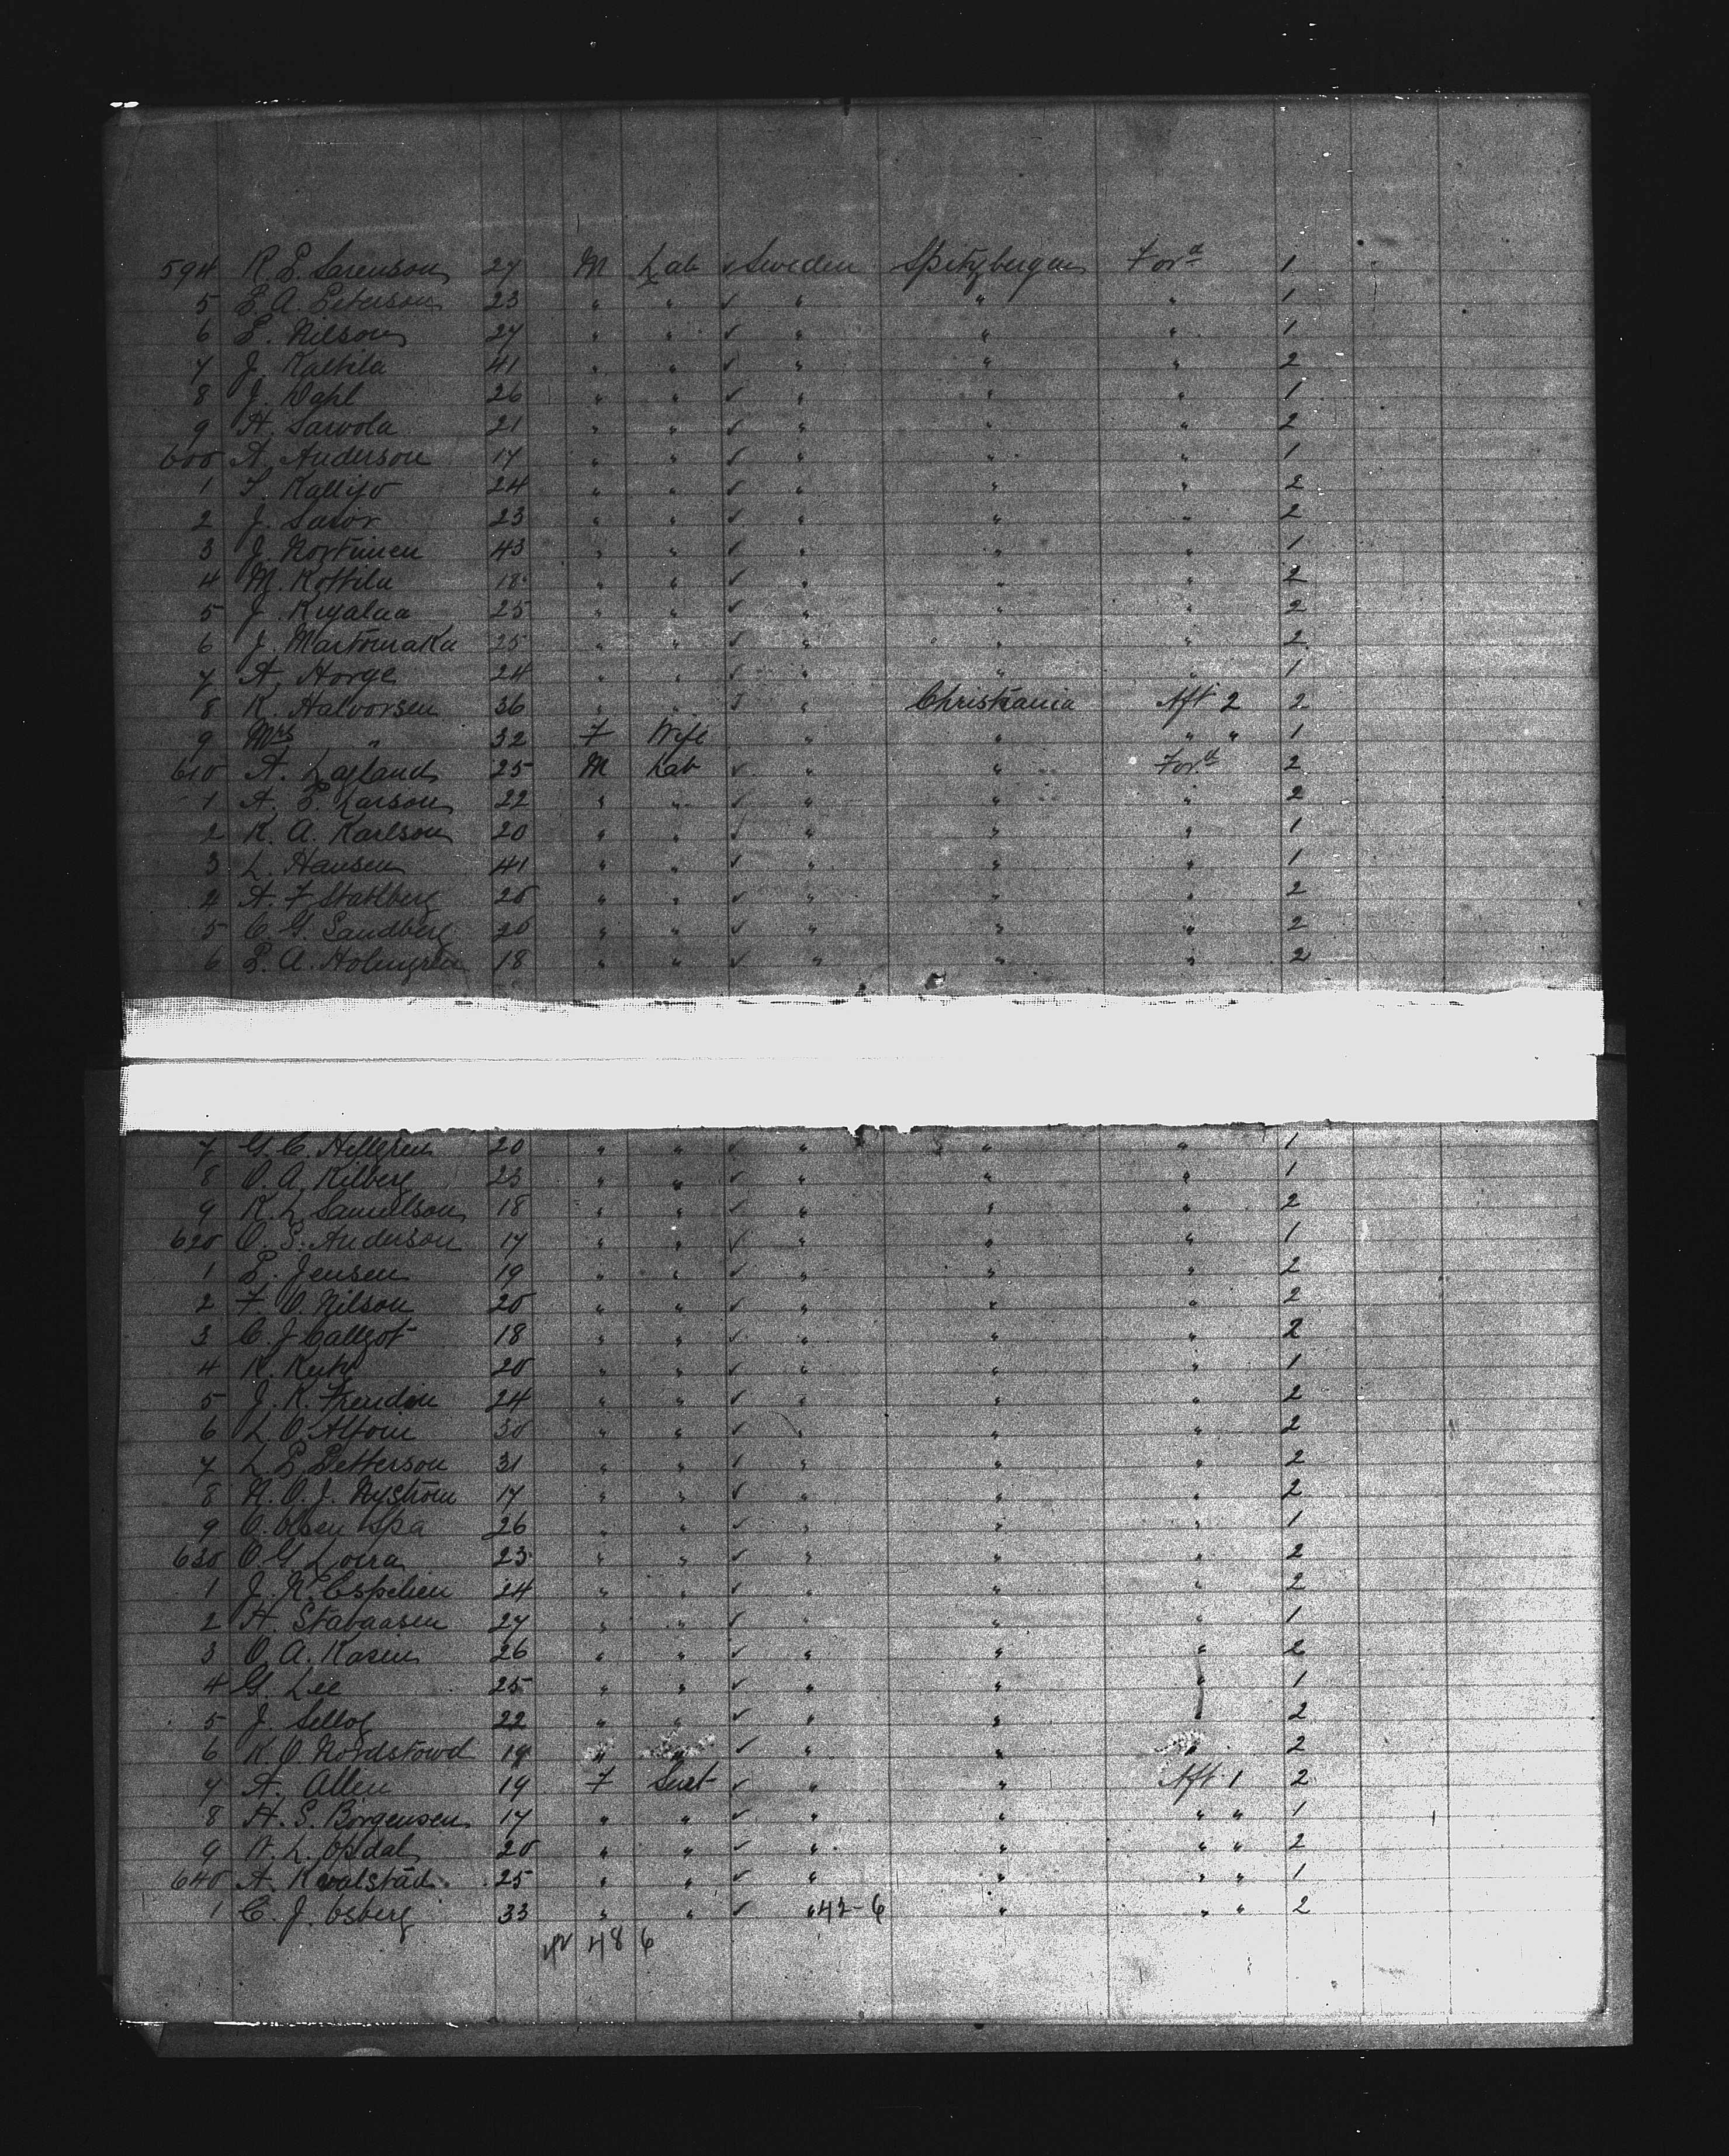 594 R. P. Sarenson 27 M Lab ✓ Sweden Spitzbergen For'd 1
5 P. A. Peterson 23 " " ✓ " " " 1
6 P. Nilson 27 " " ✓ " " " 1
7 J. Kaltila 41 " " ✓ " " " 2
8 J. Dahl 26 " " ✓ " " " 1
9 H. Sarvola 21 " " ✓ " " " 2
600 A. Anderson 17 " " ✓ " " " 1
1 Kallijo 24 " " ✓ " " " 2
2 J. 23 " " ✓ " " " 2
3 J. 43 " " ✓ " " " 1
4 M. Kottila 18 " " ✓ " " " 2
5 J. 25 " " ✓ " " " 2
6 J. Martomaka 25 " " ✓ " " " 2
7 A. Horge 24 " " ✓ " " " 1
8 K. Halvorsen 36 " " " Christiania Aft 2 2
9 Mrs " 32 F Wife " " " " 1
610 A. 25 M Lab ✓ " " For'd 2
1 A. P. Larson 22 " " ✓ " " " 2
2 K. A. Karlson 20 " " ✓ " " " 1
3 L. Hansen 41 " " ✓ " " " 1
4 A. F. Stahlberg 20 " " ✓ " " " 2
5 C. G. Sandberg 20 " " ✓ " " " 2
6 P. A. Holmgren 18 " " ✓ " " " 2
7 G. C. Hellgren 20 " " ✓ " " " 1
8 O. A. Kilberg 23 " " ✓ " " " 1
9 K. L. Samuelson 18 " " ✓ " " " 2
620 O. S. Anderson 17 " " ✓ " " " 1
1 P. Jensen 19 " " ✓ " " " 2
2 F. O. Nilson 20 " " ✓ " " " 2
3 C. J. 18 " " ✓ " " " 2
4 K. 20 " " ✓ " " " 1
5 J. K. Frendin 24 " " ✓ " " " 2
6 L. O. 30 " " ✓ " " " 2
7 L. P. Petterson 31 " " ✓ " " " 2
8 N. O. J. Nystrom 17 " " ✓ " " " 2
9 O. Olsen 26 " " ✓ " " " 1
630 O. G. 23 " " ✓ " " " 2
1 J. N. Espelien 24 " " ✓ " " " 2
2 H. Stabaasen 27 " " ✓ " " " 1
3 O. A. Kasin 26 " " ✓ " " " 2
4 G. Lee 25 " " ✓ " " " 1
5 J. 22 " " ✓ " " " 2
6 K. O. 19 " " ✓ " " " 2
7 A. Allen 19 F Servt ✓ " " Aft 1 2
8 H. S. Borgensen 17 " " ✓ " " " " 1
9 L. Opdal 20 " " ✓ " " " " 2
640 A. Kvalstad 25 " " ✓ " " " " 1
1 C. J. Osberg 33 " " ✓ " 42-6 " " " 2
48 6